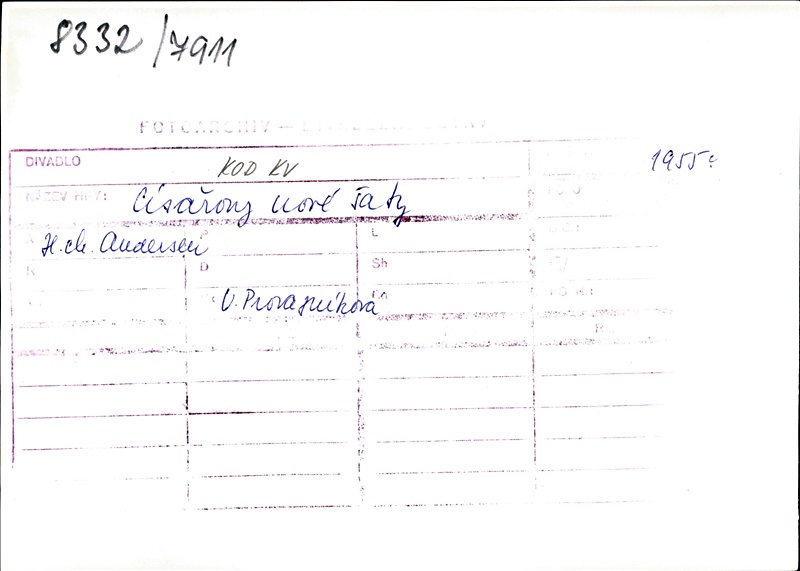 8332/7911
FOTOARCHIV —
DIVADLO KOD KV 1955
NÁZEV HRY: Císařovy nové šaty
H. ch. Andersen L
K D Sh
V. Provazníková